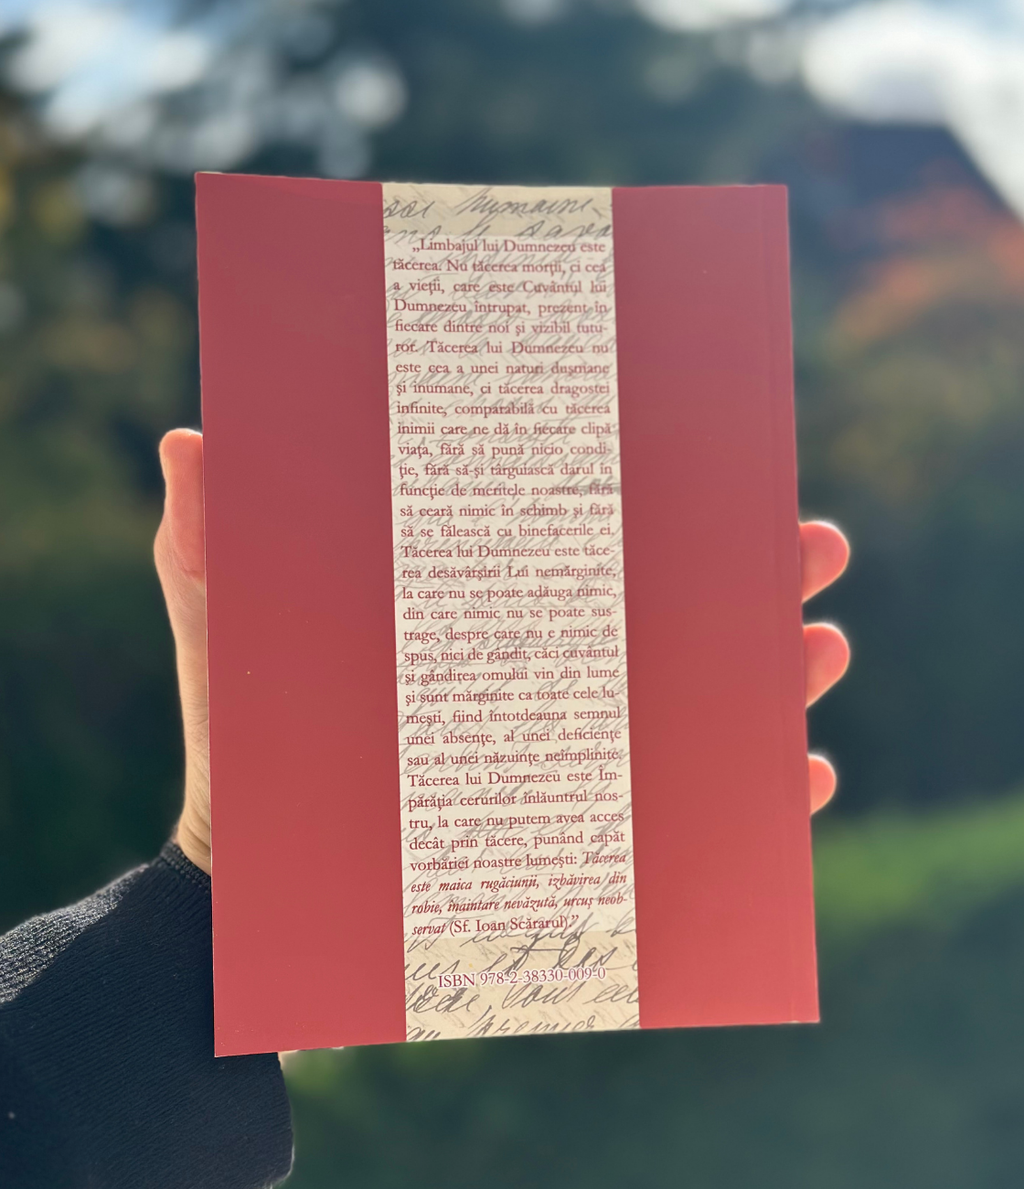 soi humaine
„Limbajul lui Dumnezeu este
tăcerea. Nu tăcerea morții, ci cea
a vieții, care este Cuvântul lui
Dumnezeu întrupat, prezent în
fiecare dintre noi și vizibil tutu-
ror. Tăcerea lui Dumnezeu nu
este cea a unei naturi dușmane
și inumane, ci tăcerea dragostei
infinite, comparabilă cu tăcerea
inimii care ne dă în fiecare clipă
viața, fără să pună nicio condi-
ție, fără să-și târguiască darul în
funcție de meritele noastre, fără
să ceară nimic în schimb și fără
să se fălească cu binefacerile ei.
Tăcerea lui Dumnezeu este tăce-
rea desăvârșirii Lui nemărginite,
la care nu se poate adăuga nimic,
din care nimic nu se poate sus-
trage, despre care nu e nimic de
spus, nici de gândit, căci cuvântul
și gândirea omului vin din lume
și sunt mărginite ca toate cele lu-
mești, fiind întotdeauna semnul
unei absențe, al unei deficiențe
sau al unei năzuințe neîmplinite.
Tăcerea lui Dumnezeu este Îm-
părăția cerurilor înlăuntrul nos-
tru, la care nu putem avea acces
decât prin tăcere, punând capăt
vorbăriei noastre lumești: Tăcerea
este maica rugăciunii, izbăvirea din
robie, înaintare nevăzută, urcuș neob-
servat (Sf. Ioan Scărarul).”
ISBN 978-2-38330-009-0
premier